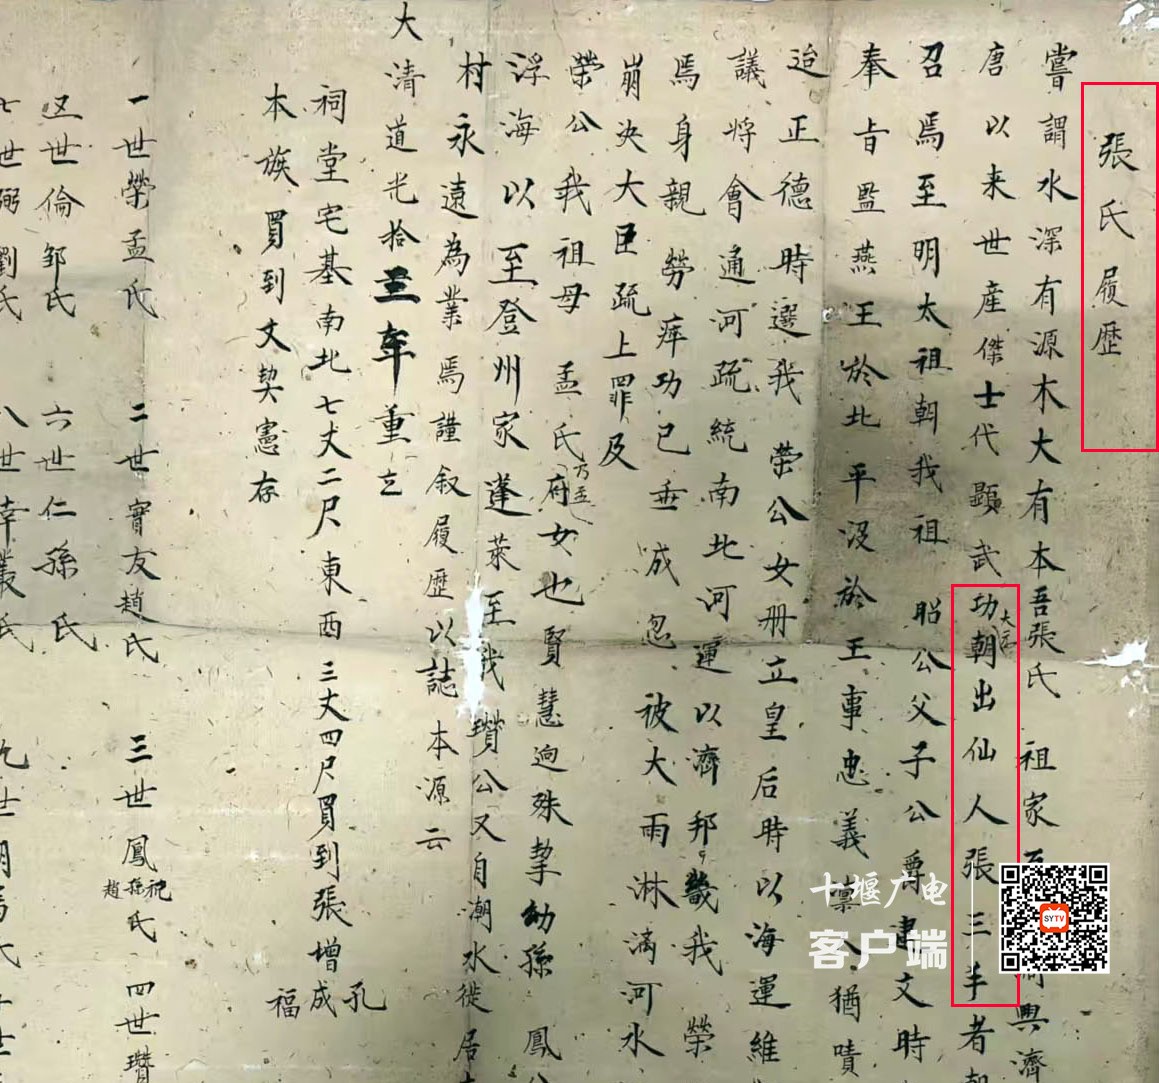 張氏履歷
嘗謂水深有源木大有本吾張氏 祖家 興濟
唐以来世産傑士代顯武功大元朝出仙人張三丰者
召焉至明太祖朝我祖 昭公父子公爵 文時
奉旨監燕王於北平没於王事忠義 猶嘖
迨正德時選我 荣公女冊立皇后時以海運維
議將會通河疏統南北河運以濟邦畿我 榮
焉身親勞瘁功已垂成忽被大雨淋漓河水
崩决大臣疏上罪及
榮公我祖母 孟氏 府女也賢慧逈殊挈幼孫 鳳
浮海以至登州家蓬萊至我 瓚公又自潮水徙居
村永遠為業焉謹叙履歷以誌本源云
大清道光拾三年重立
祠堂宅基南北七丈二尺東西三丈四尺買到張增成孔福
本族買到文契憲存
一世榮孟氏 二世實友趙氏 三世鳳趙孫祝氏 四世瓚
五世倫邹氏 六世仁孫氏
七世弼劉氏 八世 叢氏
十堰广电
客户端
SYTV